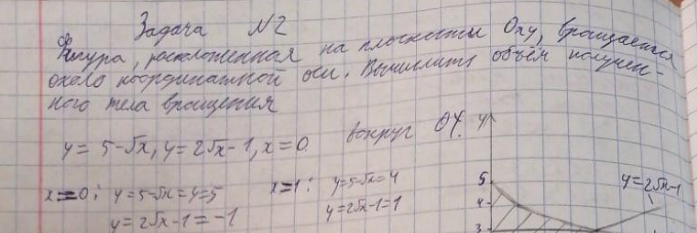 Задача №2
Фигура, расположенная на плоскости Oxy, вращается
около координатной оси. Вычислить объём получен-
ного тела вращения
y = 5-√x, y = 2√x-1, x=0 вокруг OY.
x=0: y=5-√x=y=5 x=1: y=5-√x=4
y=2√x-1=-1 y=2√x-1=1
y
5
4
3
y=2√x-1